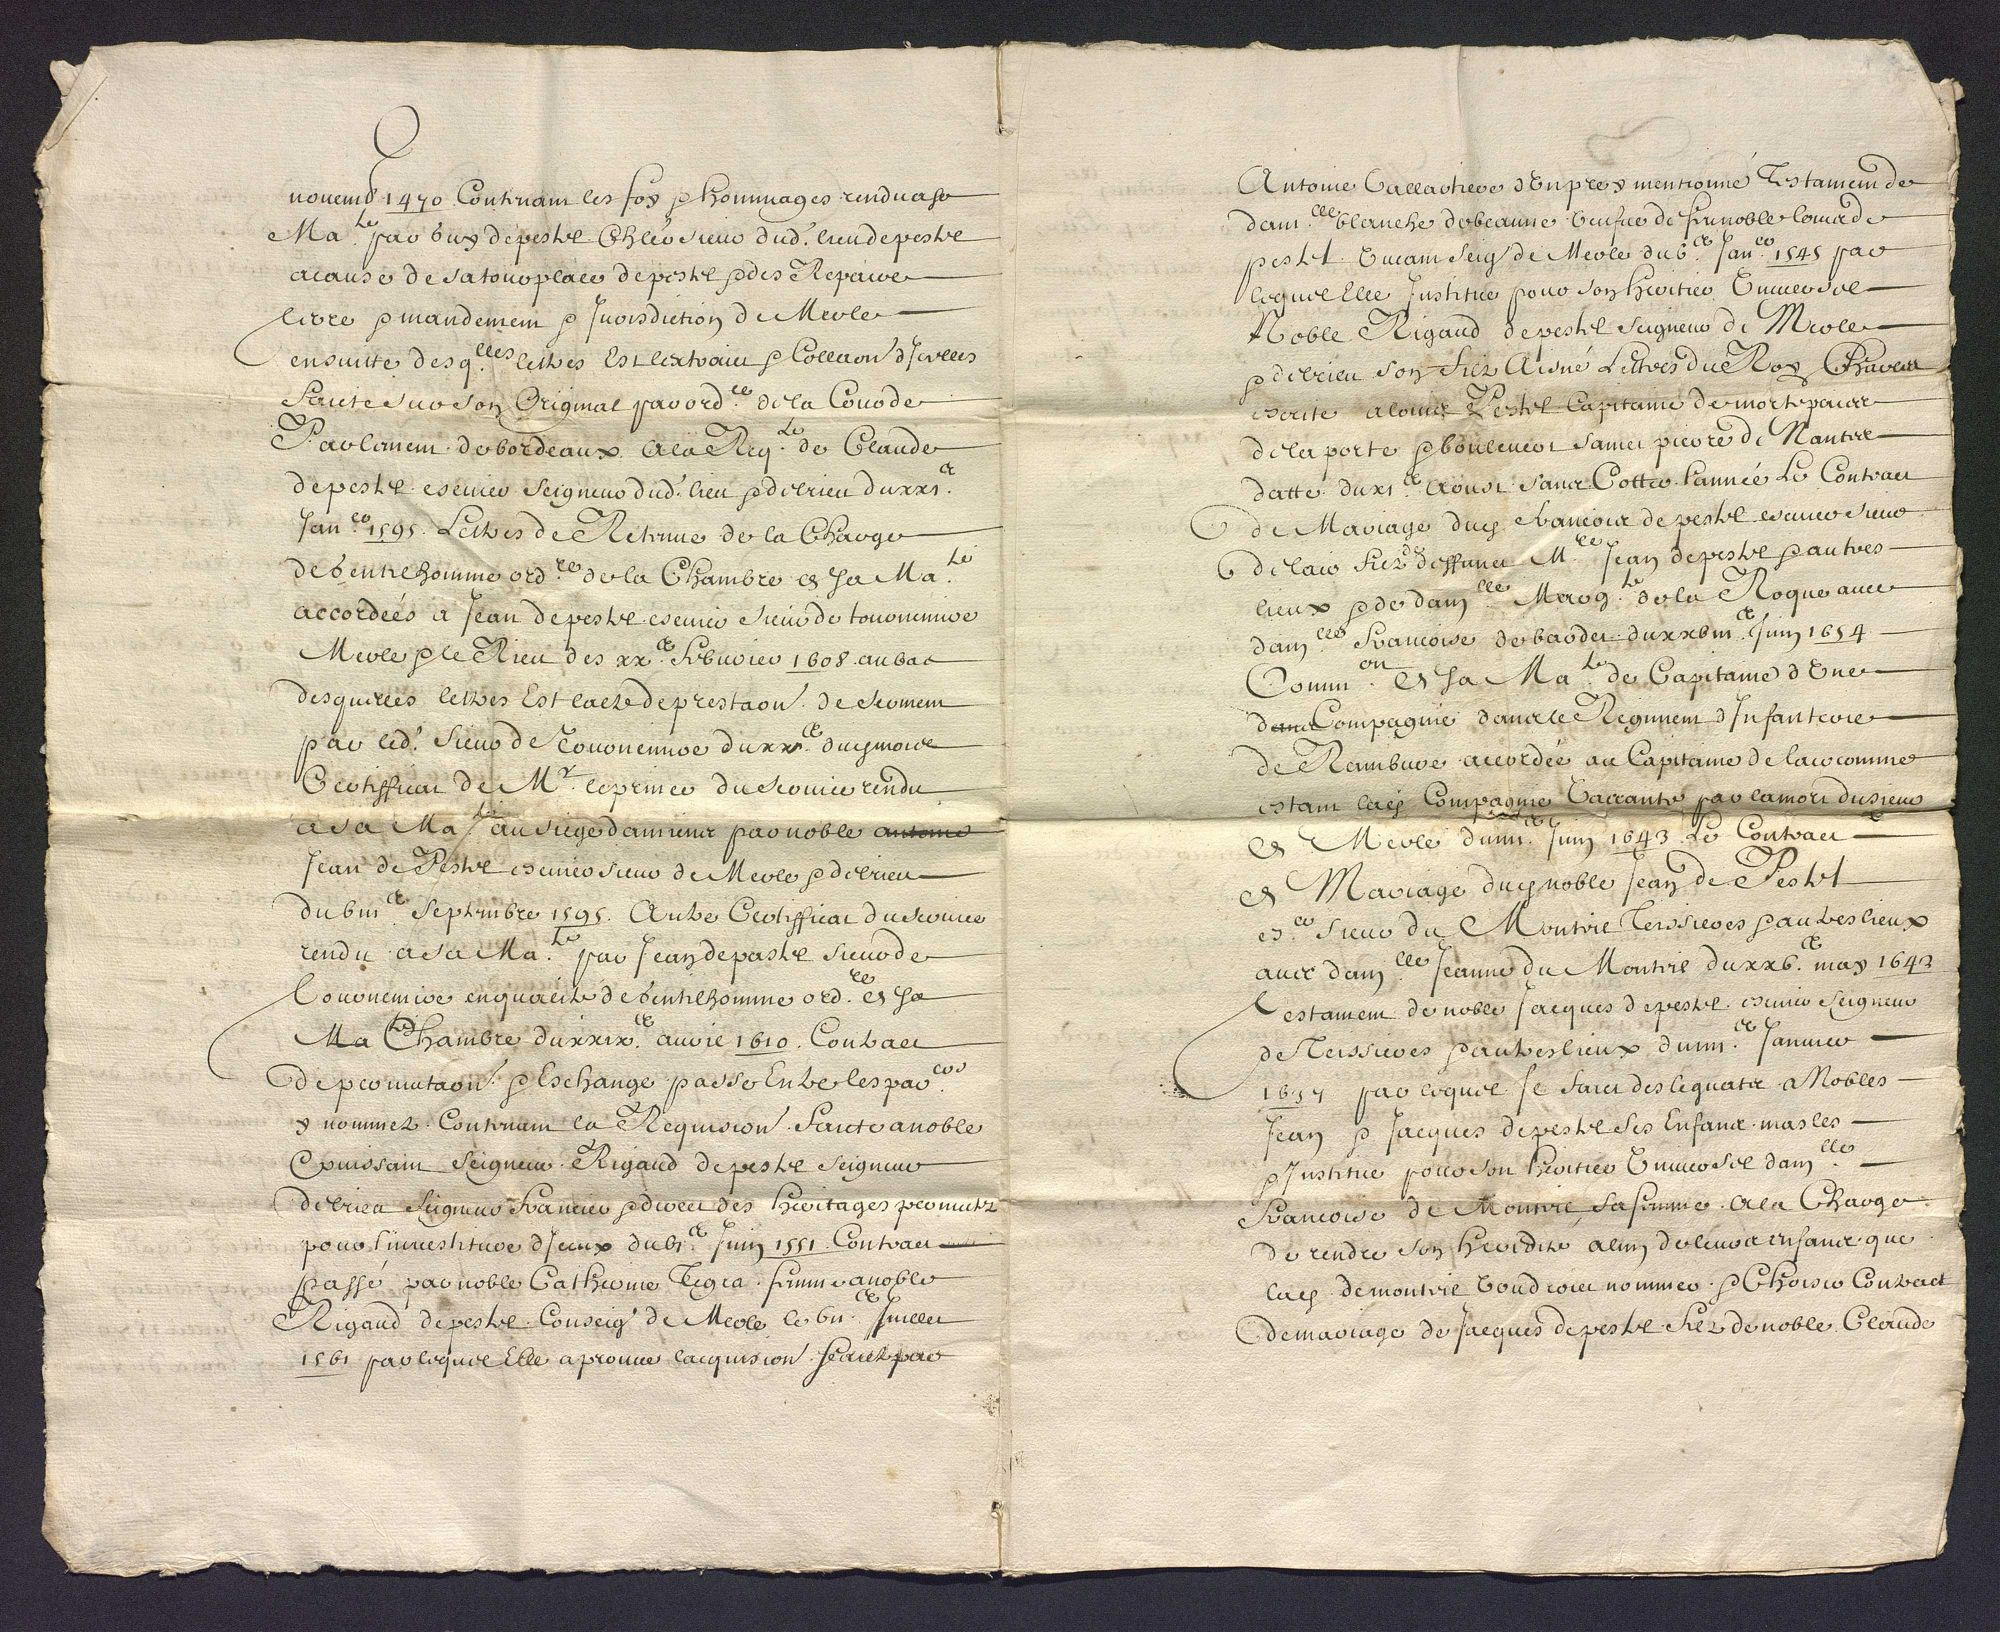 novemb 1470 Contenant les foy & hommages rendu a sa
Ma.té par Guy de pestel Ch.ler sieur dud. lieu de pestel
a cause de sa tour place de pestel & des Repaire
terre & mandement & Jurisdiction de Merle
ensuitte desq.lles lettres Est lextraict & Collaon dJcelles
faicte sur son Original par ord.ce de la Cour de
Parlement de bordeaux a la Req.te de Claude
de pestel escuier Seigneur dud. lieu & debrieu du xxi.e
Jan.er 1595. Lettres de Retenue de la Charge
de Gentilhomme ord.re de la Chambre de Sa Ma.té
accordées a Jean de pestel escuier sieur de tournemire
Merle & le Rieu des xx.e febvrier 1608 au bas
desquelles lettres Est lacte de prestaon de serment
par led. sieur de Tournemire du xx.e dud mois
Certifficat de M.r le prince du service rendu
a sa Ma.té au siege damiens par noble antoine
Jean de Pestel escuier sieur de Merle & debrieu
du viii.e Septembre 1595. Autre Certifficat du service
rendu a sa Ma.té par Jean de pestel sieur de
Tournemire en qualité de Gentilhomme ord.re de Sa
Ma.té Chambre du xxix.e avril 1610. Contract
de permutaon & Eschange passé Entre les par.ties
y nommez Contenant la Requision faicte a noble
& puissant Seigneur Rigaud de pestel Seigneur
debrieu Seigneur foncier & direct des heritages permutz
pour linvestiture dJceux du vi.e Juin 1551. Contract
passé par noble Catherine femme a noble
Rigaud de pestel Conseig.r de Merle le vii.e Juillet
1561 par lequel Elle aprouve lacquision faicte par
Antoine Vallactiere Enpres mentionné Testament de
dam.lle blanche debeaune veufve de feu noble louis de
pestel vivant Seig.r de Merle du 6.e Jan.er 1545 par
lequel Elle Institue pour son heritier Vniversel
Noble Rigaud de pestel Seigneur de Merle
& debrieu son filz Aisné Lettres du Roy Charles
escrite a louis Pestel Capitaine de mortepaies
de la porte & boulevert sainct pierre de Nantes
datte du xi.e aoust sans Cotter lannée Le Contract
de Mariage dud francois de pestel escuier sieur
de lair filz de deffunct M.re Jean de pestel & autres
lieux & de dam.lle Marg.te de la Roque avec
dam.lle francoise de bardet du xxviii.e Juin 1654
Comm.on de Sa Ma.té de Capitaine dVne
dans Compagnie dans le Regiment dInfanterie
de Rambure accordée au Capitaine de lair comme
estant lad Compagnie Vaccante par la mort du sieur
de Merle du iiii.e Juin 1643 Le Contract
de Mariage dud noble Jean de Pestel
es.er sieur du Montvie Teissieres & autres lieux
avec dam.lle Jeanne du Montvie du xxv.e may 1642
Testament de noble Jacques de pestel escuier Seigneur
de Teissieres & autres lieux du iiii.e Janvier
1657 par lequel Il faict des legaatz a Nobles
Jean & Jacques de pestel ses Enfans masles
& Institue pour son heritier Vniversel dam.lle
francoise de Montvie sa femme a la Charge
de rendre son heredité a lun de leurs enfans que
lad de montvie voudroit nommer & Choisir Contract
de mariage de Jacques de pestel filz de noble Claude